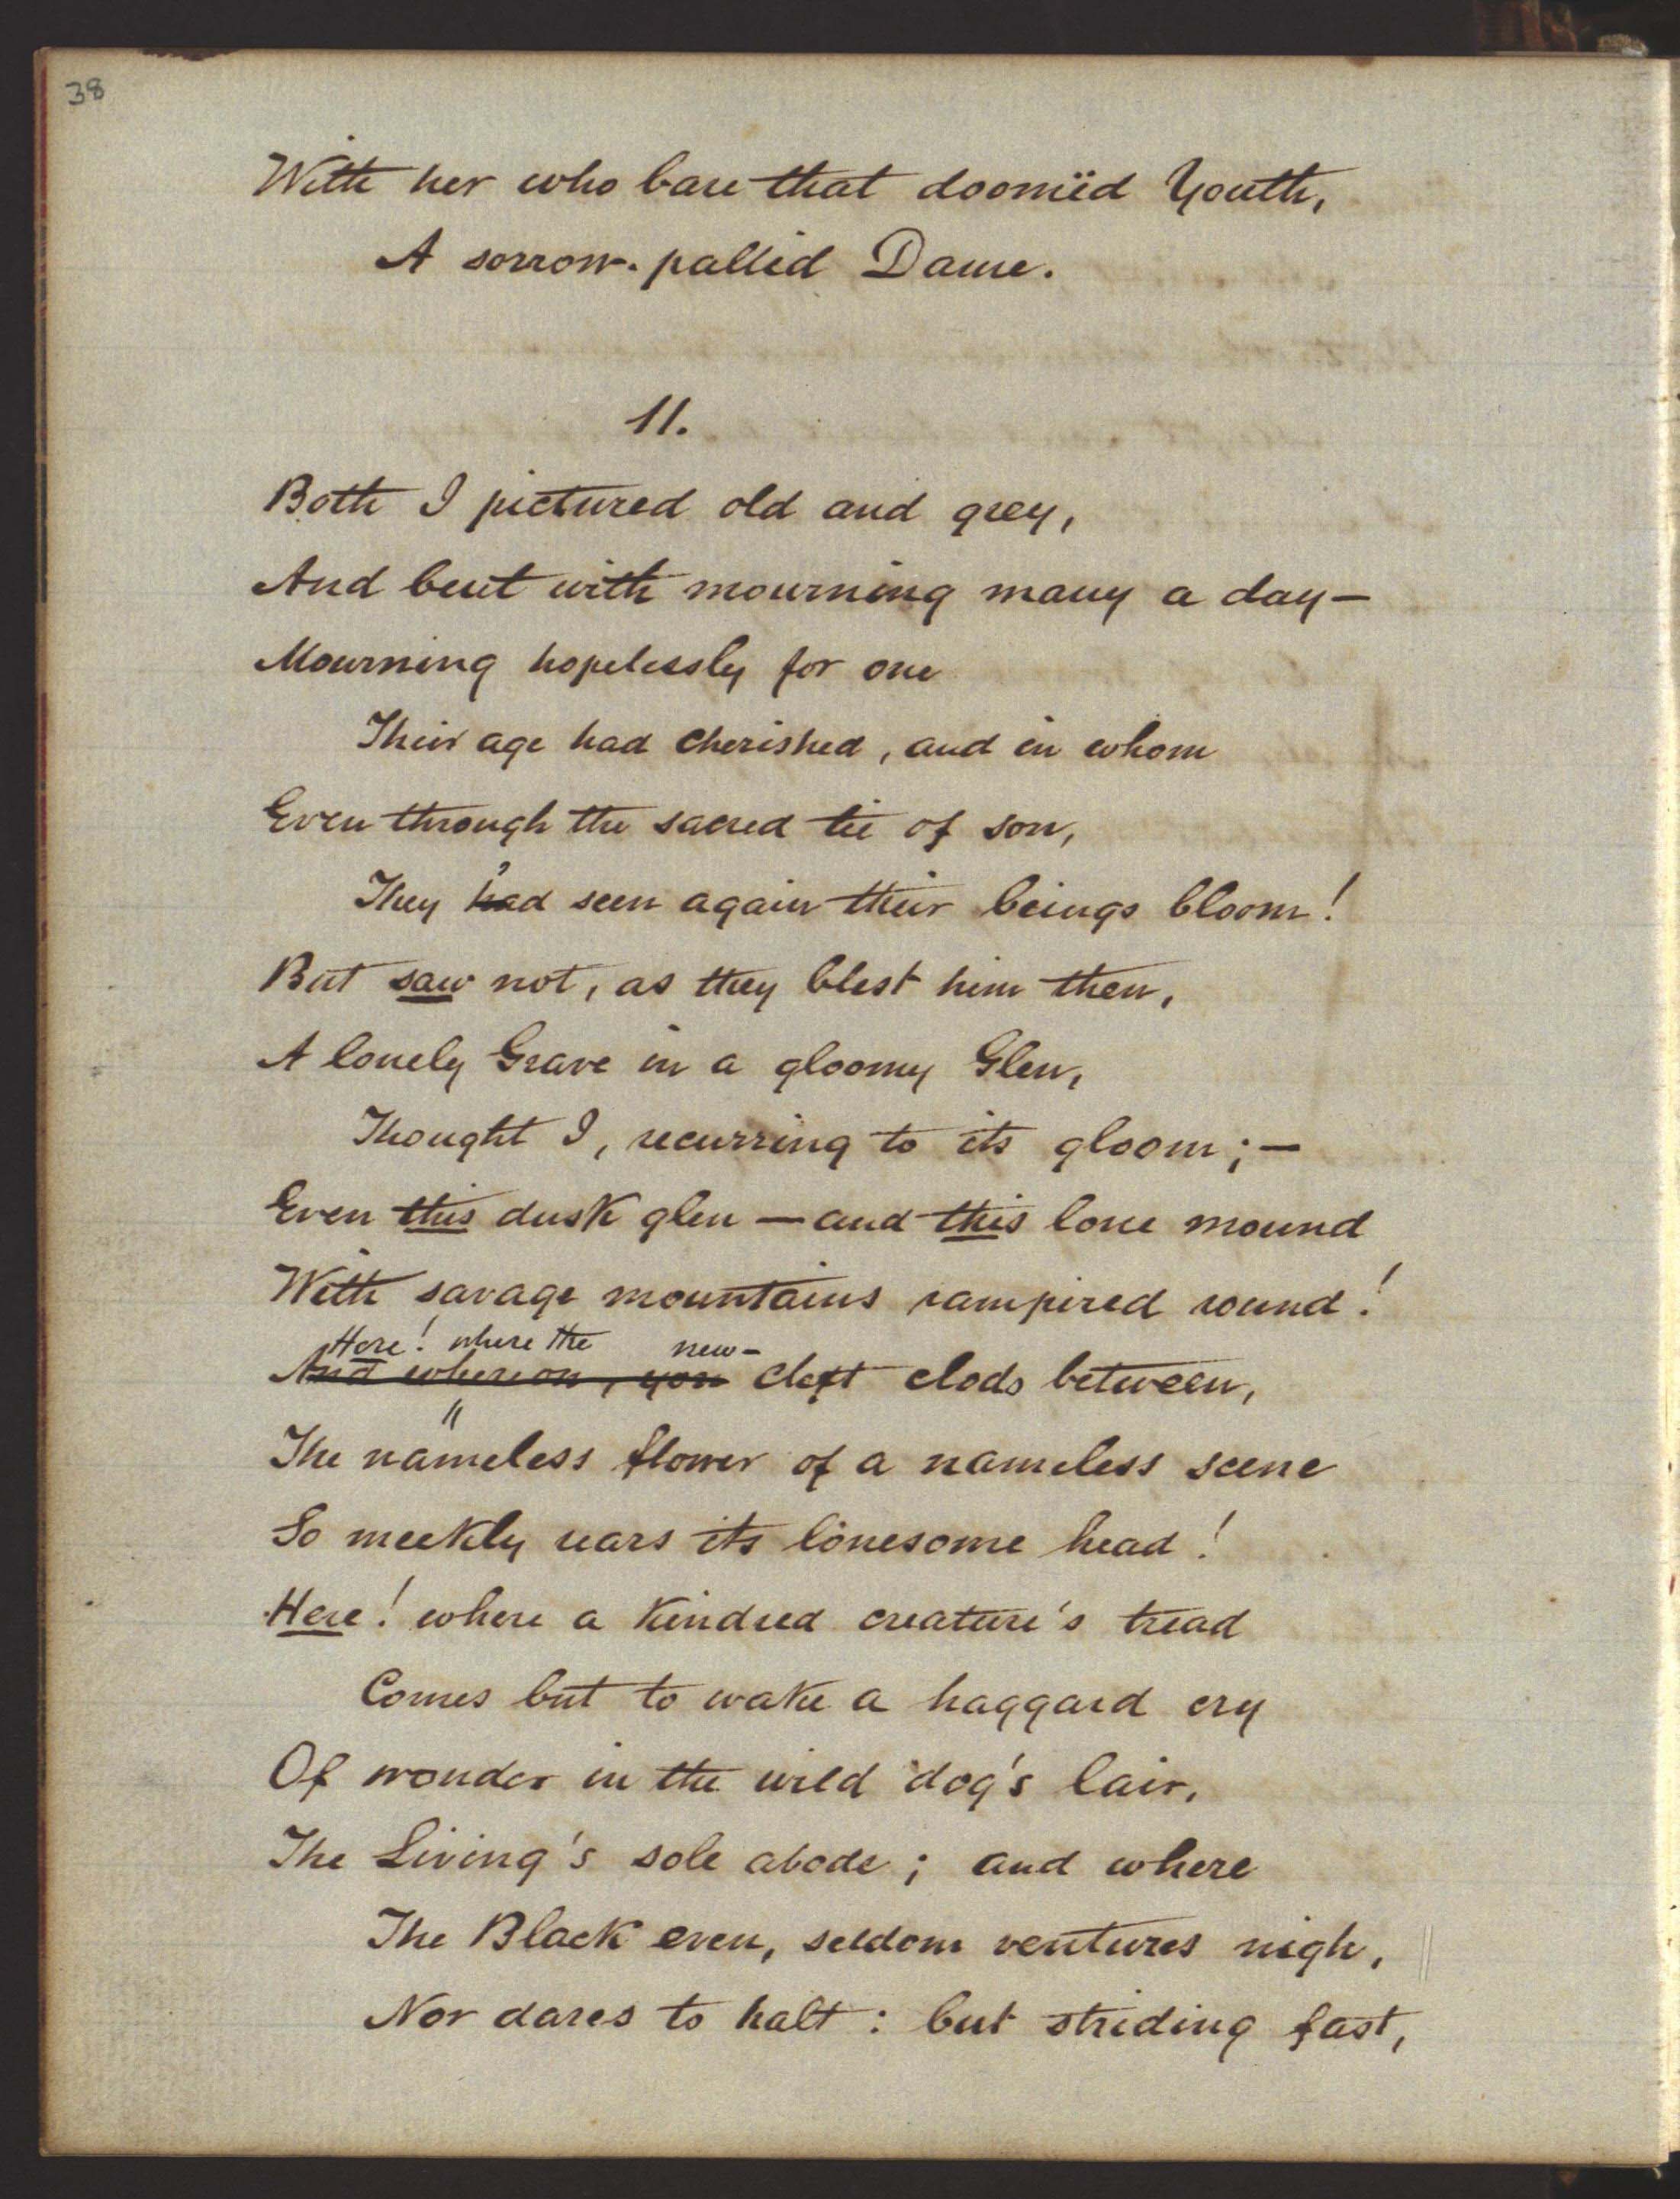 38
With her who bare that doomïed Youth,
A sorrow-pallid Dame.
11.
Both I pictured old and grey,
And bent with mourning many a day—
Mourning hopelessly for one
Their age had cherished, and in whom
Even through the sacred tie of son,
They 'd seen again their beings bloom!
But saw not, as they blest him then,
A lonely Grave in a gloomy Glen,
Thought I, recurring to its gloom;—
Even this dusk glen — and this lone mound
With savage mountains rampired round!
Here! where the new-
And whereon, yon cleft clods between,
The nameless flower of a nameless scene
So meekly rears its lonesome head!
Here! where a kindred creature's tread
Comes but to wake a haggard cry
Of wonder in the wild dog's lair,
The Living's sole abode; and where
The Black even, seldom ventures nigh,
Nor dares to halt: but striding fast,